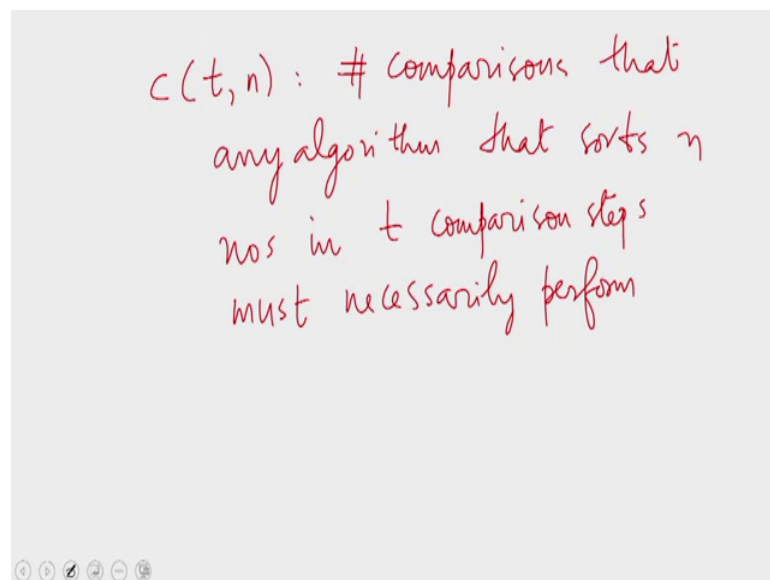 c(t,n) : # comparisons that
any algorithm that sorts n
nos in t comparison steps
must necessarily perform